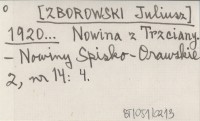 [ZBOROWSKI Juliusz]
1920... Nowina z Trzciany.
- Nowiny Spisko-Orawskie
2, nr 14: 4.